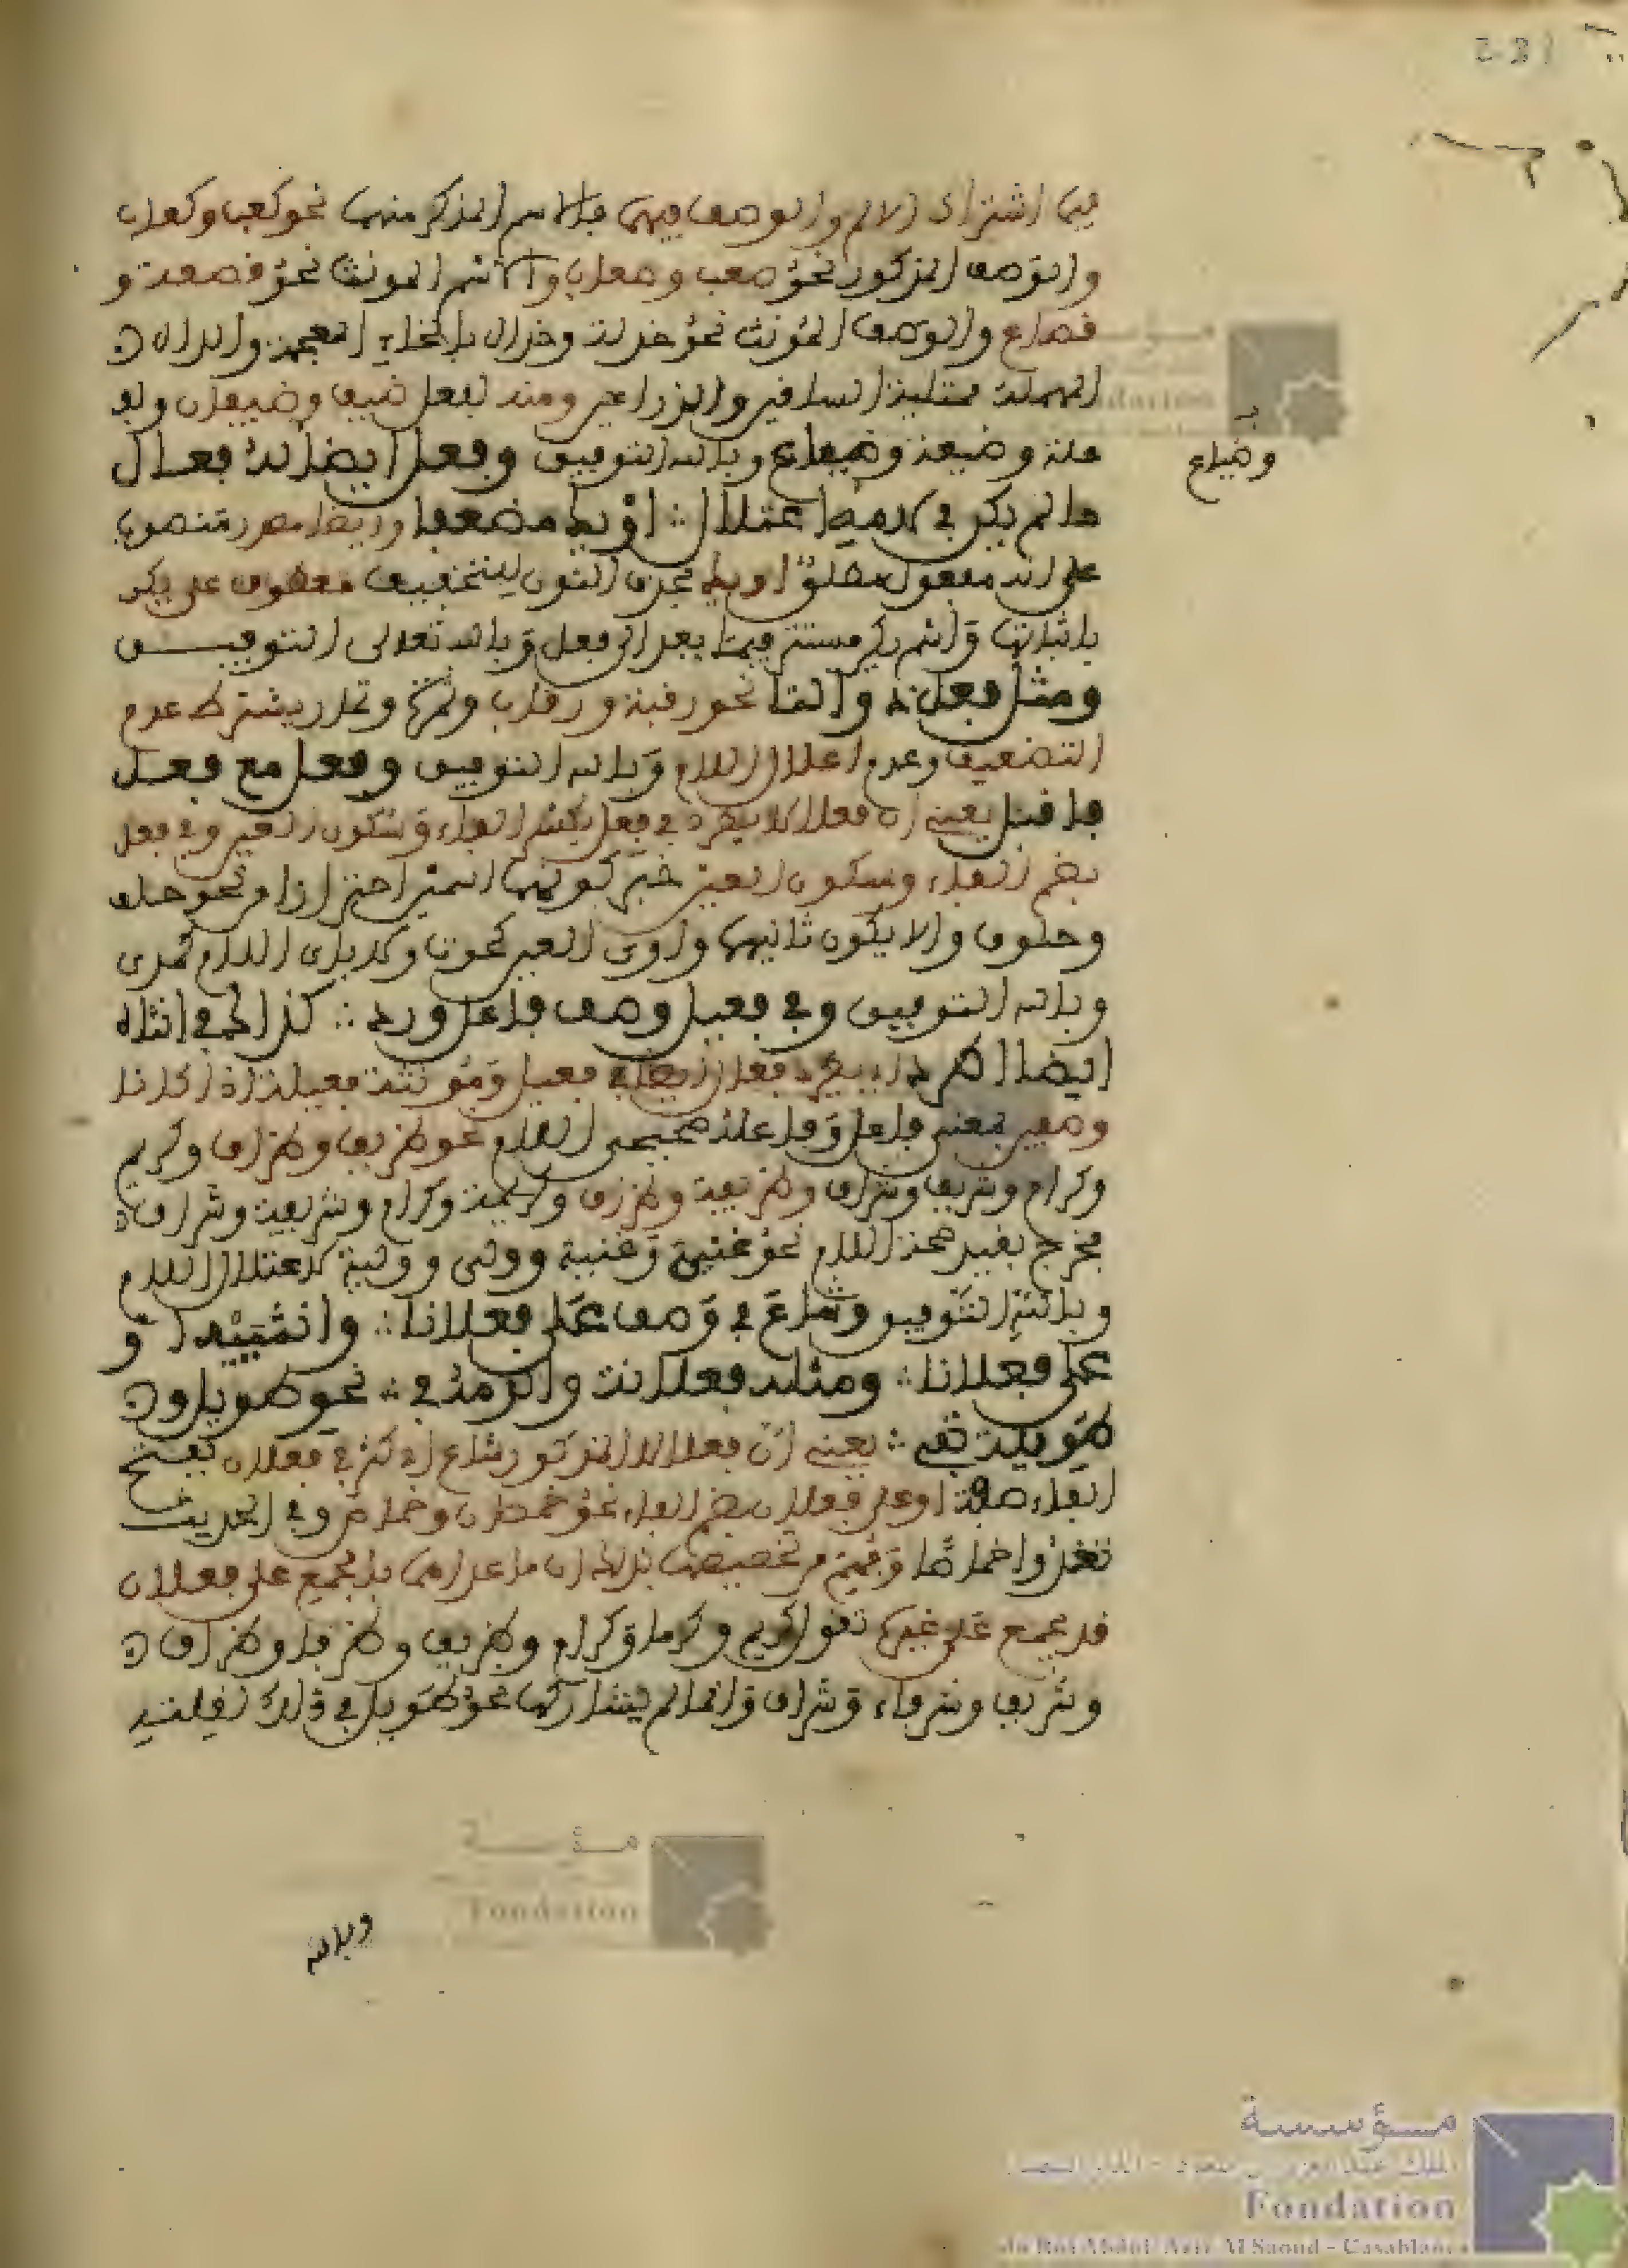 فيها اشتراك الاسم والوصف فيهما فالاسم المذكر منهما نحو كعب وكعاب
والوصف المذكور نحو صعب وصعاب والاسم المونث نحو قصعة و
قصاع والوصف المؤنث نحو خدلة وخدال بالخاء المعجمة والدال
المهملة ممتلية الساقين والذراعين ومنه لفعل ضيف وضيفان ولف
علة وضيعة وضيعاع وبالله التوفيق وفعل ايضا له فعال
وضياع
ما لم يكن في لامه اعتلال ∴ او يك مضعفا وايضا مصدر منصوب
على انه مفعول مطلق او يك بحذف النون لتخفيف معطوف على يكن
باثباتها واسم يك مستتر فيها يعود الى فعل وبالله تعالى التوفيق
ومثل فعل ذو التا نحو رقبة ورقاب وثمرة وثمار ويشترط عدم
التضعيف وعدم اعلال اللام وبالله التوفيق وفعل مع فعل
فاقبل يعني ان فعالا يطرد في فعل بكسر الفاء وسكون العين وفي فعل
بضم الفاء وسكون العين خبر كونهما اسمين احترازا من نحو جلف
وحلوف والا يكون ثانيهما واوي العين كحوت ولا ياءي اللام كمدي
وبالله التوفيق وفي فعيل وصف فاعل ورد ∴ كذاك في انثاه
ايضا اطرد اي يطرد فعال ايضا في فعيل ومؤنثه فعيلة اذا كانا
وصفين بمعنى فاعل وفاعلة صحيحي اللام نحو ظريف وظراف وكريم
وكرام وشريف وشراف وظريفة وظراف وكريمة وكرام وشريفة وشراف
فخرج بقيد صحة اللام نحو غني وغنية وولي وولية لاعتلال اللام
وبالله التوفيق وشاع في وصف على فعلانا ∴ وانثييه او
على فعلانا ∴ ومثله فعلانة والزمه في ∴ نحو طويل و
طويلة تفي ∴ يعني ان فعالا المذكور شاع اي كثر في فعلان بفتح
الفاء صفة او على فعلان بضم الفاء نحو خمصان وخماص وفي الحديث
تغدوا خماصا وفهم من تخصيصه بذلك ان ما عداهما يجمع على فعلان
قد يجمع على غيرها تقول كريم وكرما وكرام وظريف وظرفا وظراف
وشريف وشرفاء وشراف وانما لم يشاركها نحو طويل في ذلك لقلته
وبالله
مؤسسة
Fondation
مؤسسة
Fondation
du Roi Abdul-Aziz Al Saoud - Casablanca